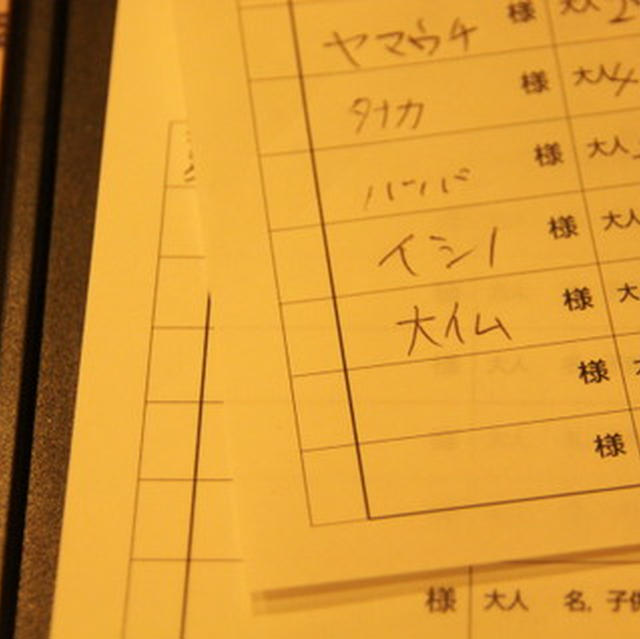 ヤマウチ 様 大人 2
タナカ 様 大人 4
ババ 様 大人
イシノ 様 大人
大イム 様 大
様
様
様 大人 名, 子供